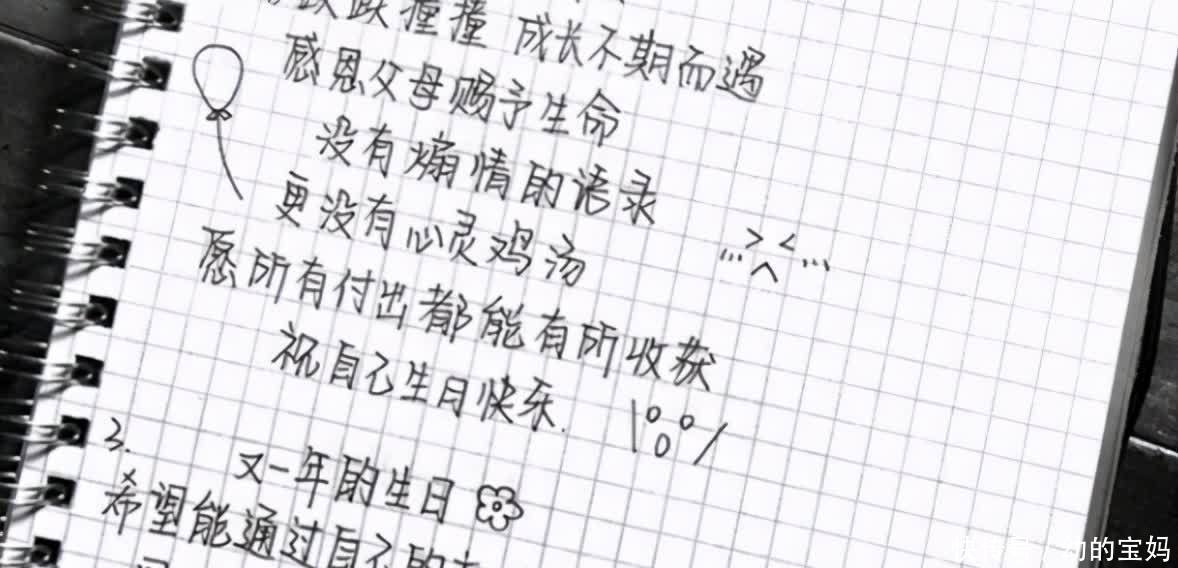 跌跌撞撞 成长不期而遇
感恩父母赐予生命
没有煽情的语录
更没有心灵鸡汤
愿所有付出都能有所收获
祝自己生日快乐.
3.
又一年的生日
希望能通过自己的
幼的宝妈